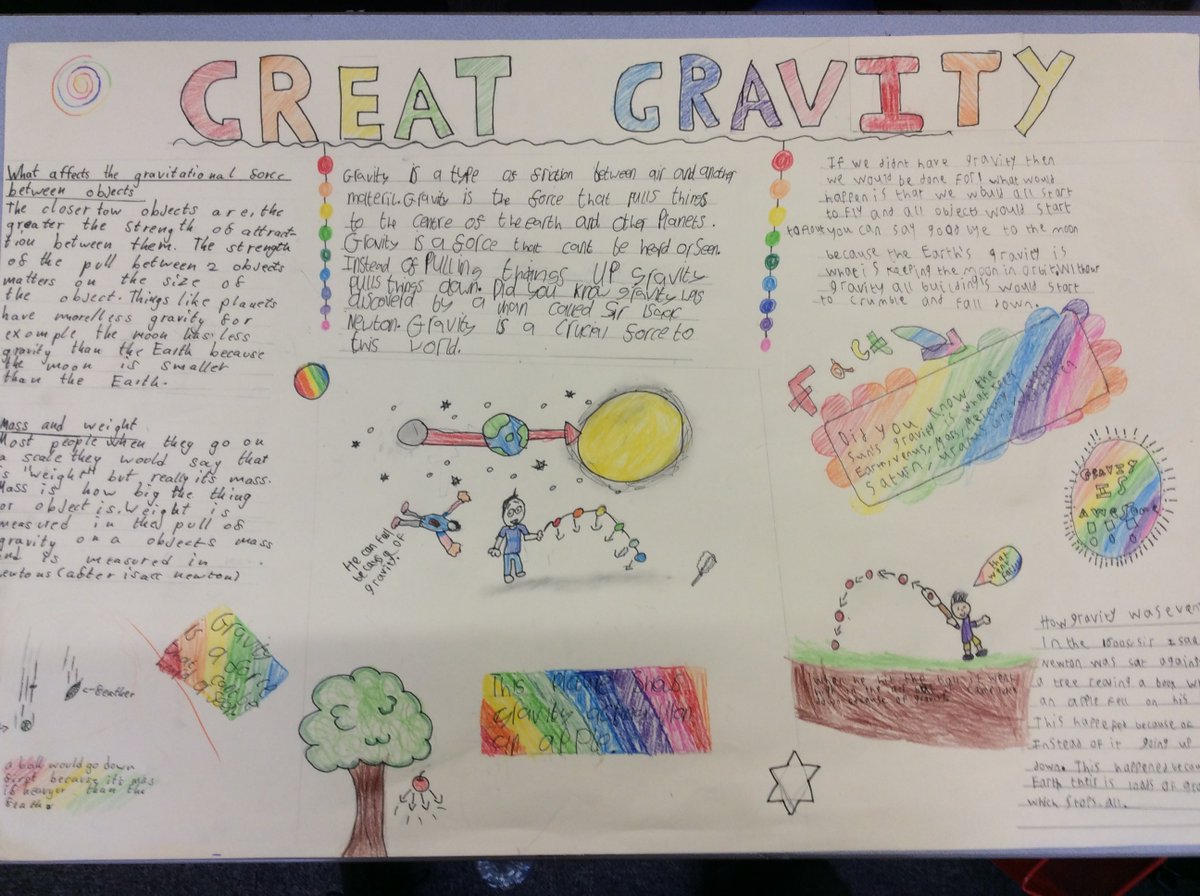 GREAT GRAVITY
What affects the gravitational force
between objects
The closer tow objects are, the
greater the strength of attract
tion between them. The strength
of the pull between 2 objects
matters on the size of
the object. Things like planets
have more/less gravity for
example the moon has less
gravity than the Earth because
the moon is smaller
than the Earth.
Mass and weight
Most people when they go on
a scale they would say that
is "weight" but really its mass.
Mass is how big the thing
or object is. Weight is
measured in the pull of
gravity on a objects mass
and is measured in
(after isacc newton)
<-feather
a ball would go down
first because it's mas
is heavyer than the
Gravity is a type of friction between air and another
materil. Gravity is the force that pulls things
to the centre of the earth and other Planets.
Gravity is a force that cant be heard or seen.
Instead of PULLING things UP gravity
pulls things down. Did you know gravity was
discoverd by a man called Sir isaac
Newton. Gravity is a crucial force to
this world.
He can fall
because of
gravity.
Gravity
is a
If we didnt have gravity then
we would be done for! what would
happen is that we would all start
to fly and all object would start
to float you can say good bye to the moon
because the Earth's gravity is
what is keeping the moon in orbit. Without
gravity all buildings would start
to crumble and fall down.
Fact
Did you know the
Sun's gravity is what keeps
Earth, Venus, Mars, Mercury
Saturn, uranus
GRAVITY
IS
AWESOME
that
went
far!
when he hit the ball it went
down because of gravity
This
Gravity
an apple
How gravity was
In the sir isaa
Newton was sat against
a tree reading a book
an apple fell on his
This happened because of
Instead of it going up
down. This happened
Earth their is loads of
which stops all.